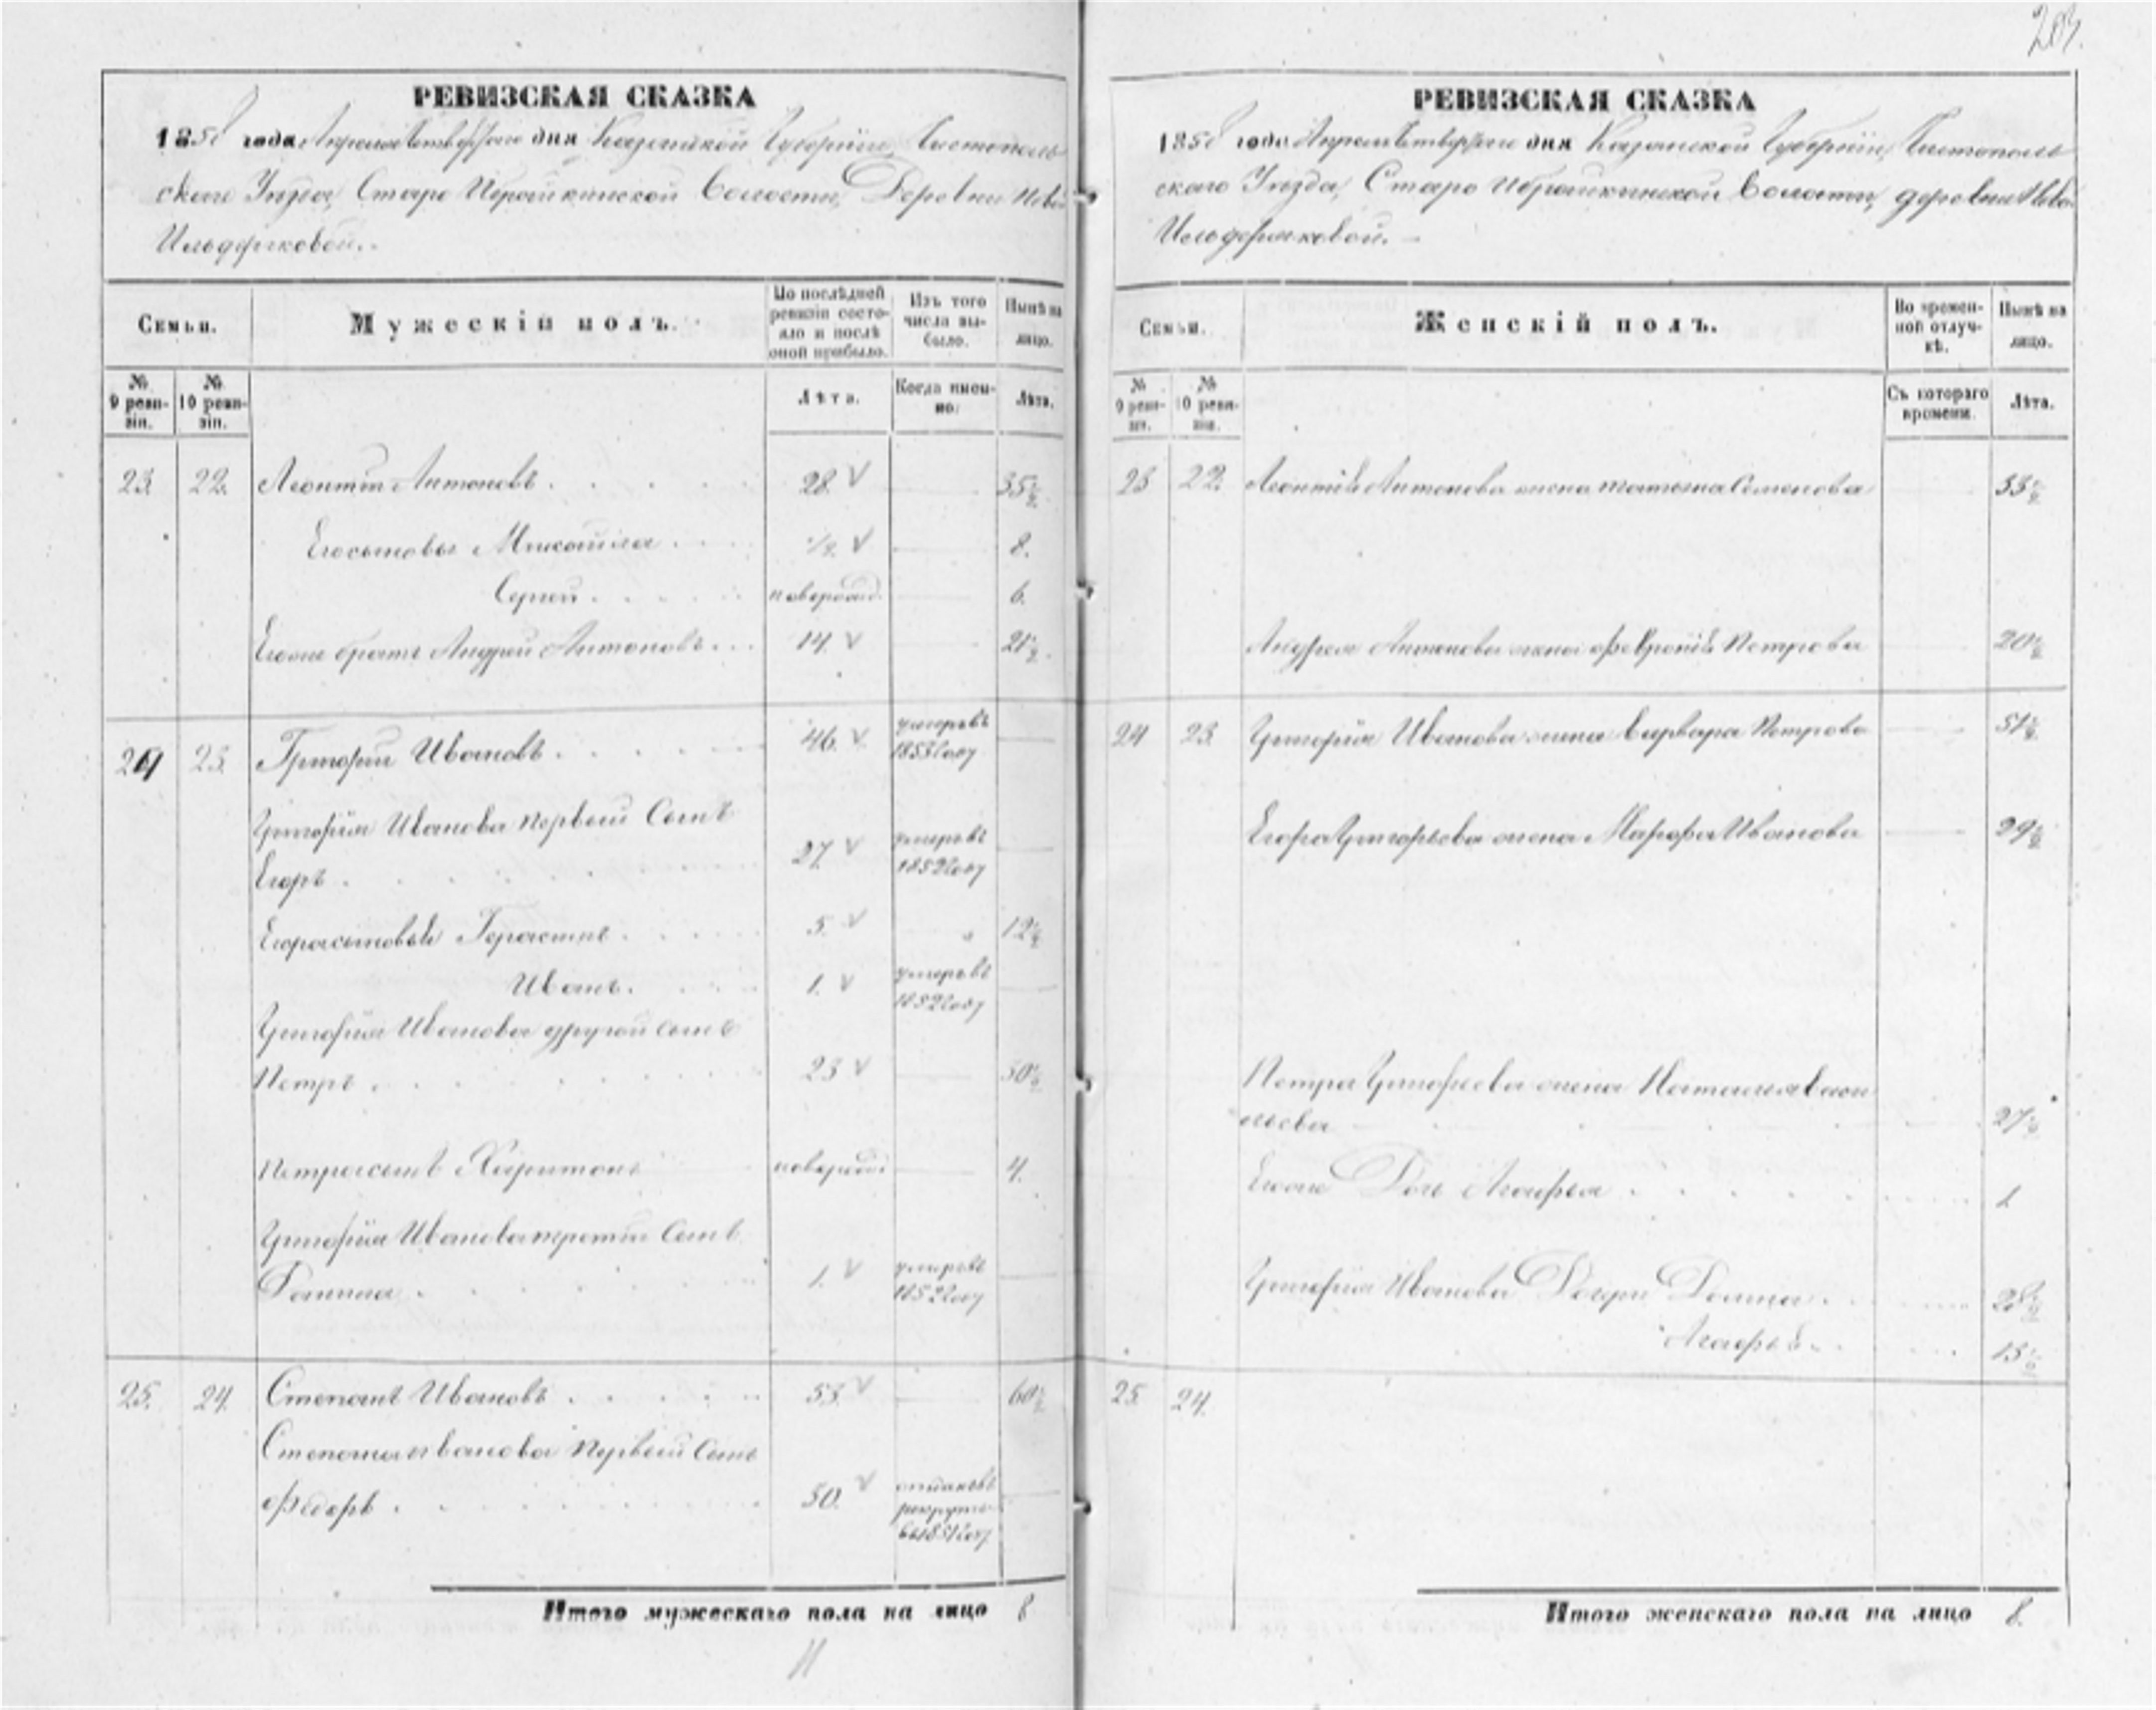 203.
РЕВИЗСКАЯ СКАЗКА
1858 года Апреля дня Казанской Губернiи, Чистополь
скаго Уѣзда, Старо Ибрайкинской Волости, Деревни Ново
Ильдеряковой.
Семьи.
Мужескiй полъ.
По послѣдней ревизiи состояло и послѣ оной прибыло.
Изъ того числа выбыло.
Нынѣ на лицо.
№ 9 ревизiи.
№ 10 ревизiи.
Лѣта.
Когда именно.
Лѣта.
23. 22. Леонтiй Антоновъ 28. 35½
Его сыновья Михайла ½ 8.
Сергей новорожд. 6.
Егоже братъ Андрей Антоновъ 14. 21½
24 23. Григорiй Ивановъ 46. умеръ въ 1853 году
Григорiя Иванова первый Сынъ
Егоръ 27. умеръ въ 1852 году
Егора сыновья Герасимъ 5. 12½
Иванъ. 1. умеръ въ 1852 году
Григорiя Иванова другой сынъ
Петръ. 23 30½
Петра сынъ Харитонъ новорожд. 4.
Григорiя Иванова третiй Сынъ
1. умеръ въ 1852 году
25. 24. Степанъ Ивановъ 53. 60½
Степана Иванова первый Сынъ
Федоръ 30. отданъ въ рекруты въ 1851 году
Итого мужескаго пола на лицо 8
11
РЕВИЗСКАЯ СКАЗКА
1858 года Апреля дня Казанской Губернiи, Чистополь
скаго Уѣзда, Старо Ибрайкинской Волости, деревни Ново
Ильдеряковой.
Семьи.
Женскiй полъ.
Во временной отлучкѣ.
Нынѣ на лицо.
№ 9 ревизiи.
№ 10 ревизiи.
Съ котораго времени.
Лѣта.
23 22. Леонтiя Антонова жена Татьяна Семенова 33½
Андрея Антонова жена Февронiя Петрова 20½
24 23. Григорiя Иванова жена Варвара Петрова 51½
Егора Григорьева жена Марфа Иванова 29½
Петра Григорьева жена Наталья Васи
льева 27½
Егоже Дочь Агафья 1
Григорiя Иванова Дочери 28½
Агафья 13½
25. 24.
Итого женскаго пола на лицо 8.